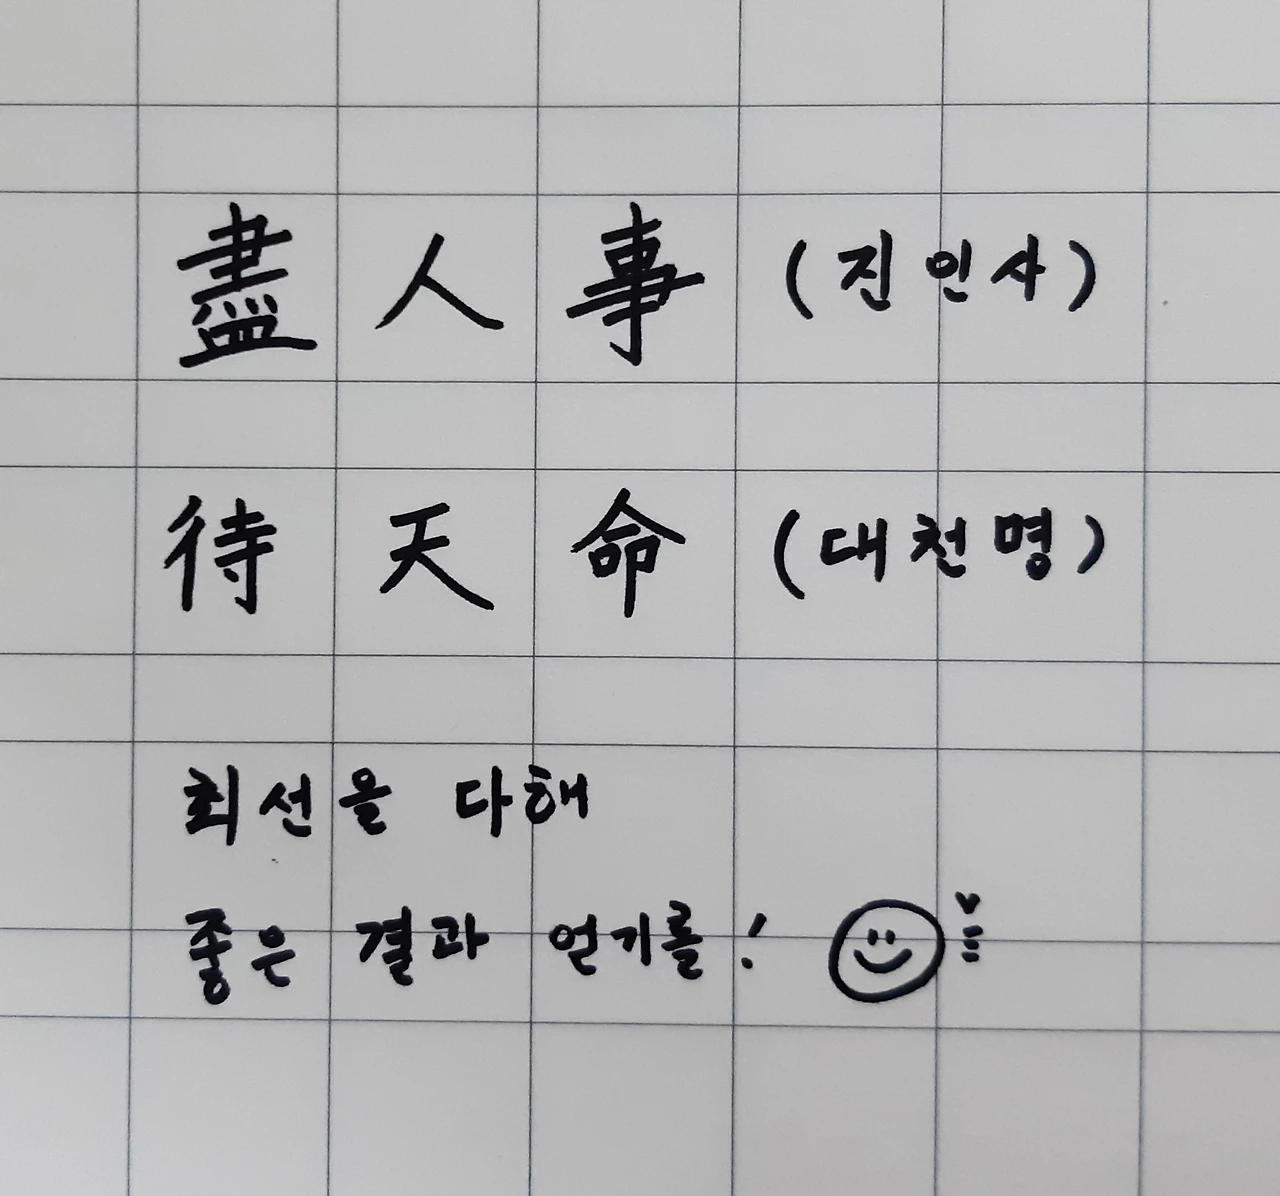 盡 人 事 (진인사)
待 天 命 (대천명)
최선을 다해
좋은 결과 얻기를!